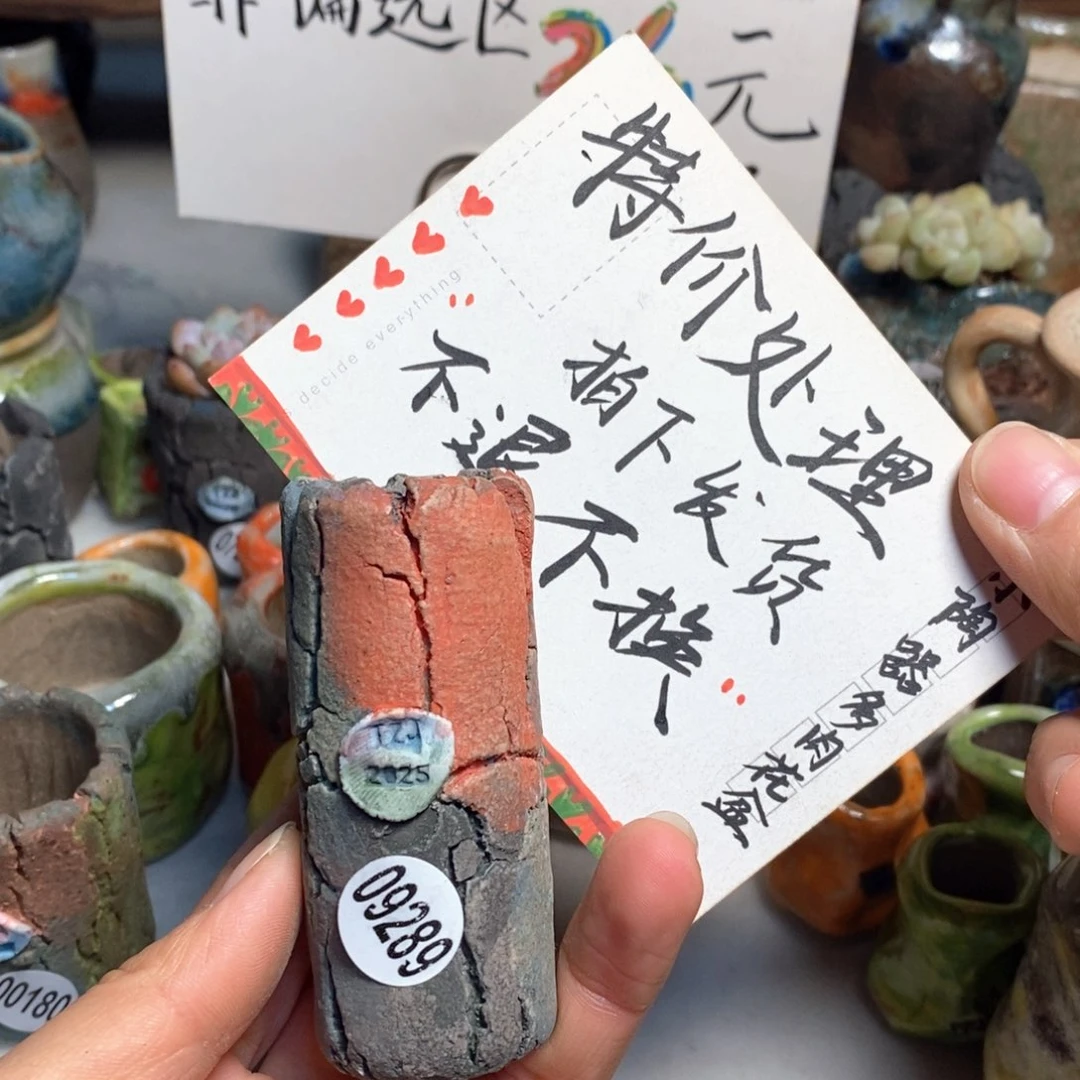 非偏远区26元
特价处理
拍下发货
"不退不换"
decide everything
陶器多肉花盆
TZJ
2025
09289
00180